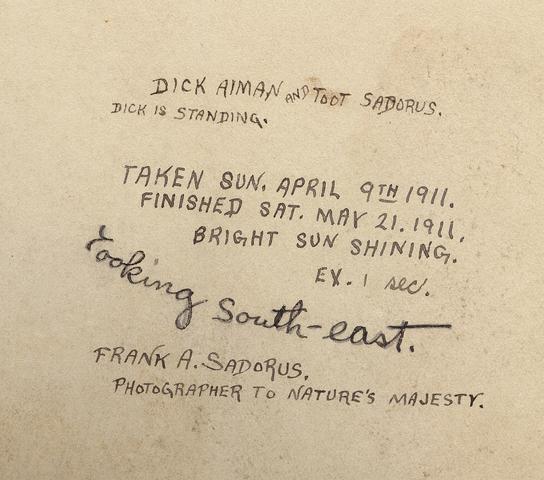 DICK AIMAN AND TOOT SADORUS.
DICK IS STANDING.
TAKEN SUN. APRIL 9TH 1911.
FINISHED SAT. MAY 21. 1911.
BRIGHT SUN SHINING.
EX. 1 sec.
Looking South-east.
FRANK A. SADORUS.
PHOTOGRAPHER TO NATURE'S MAJESTY.